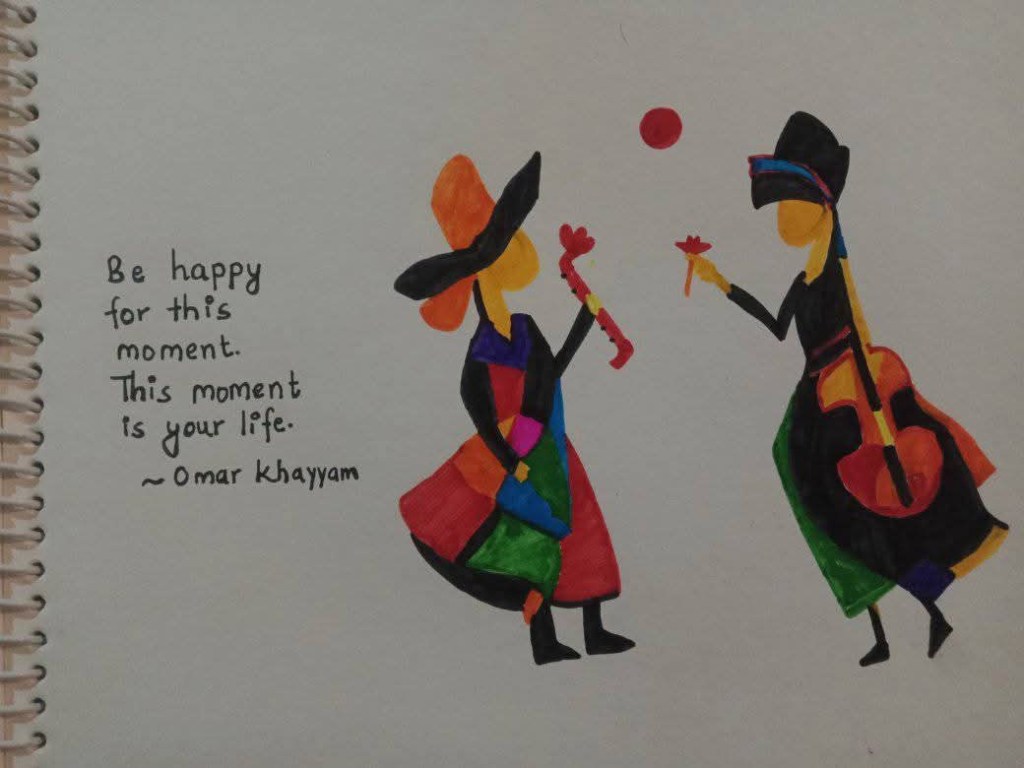 Be happy
for this
moment.
This moment
is your life.
~ Omar Khayyam